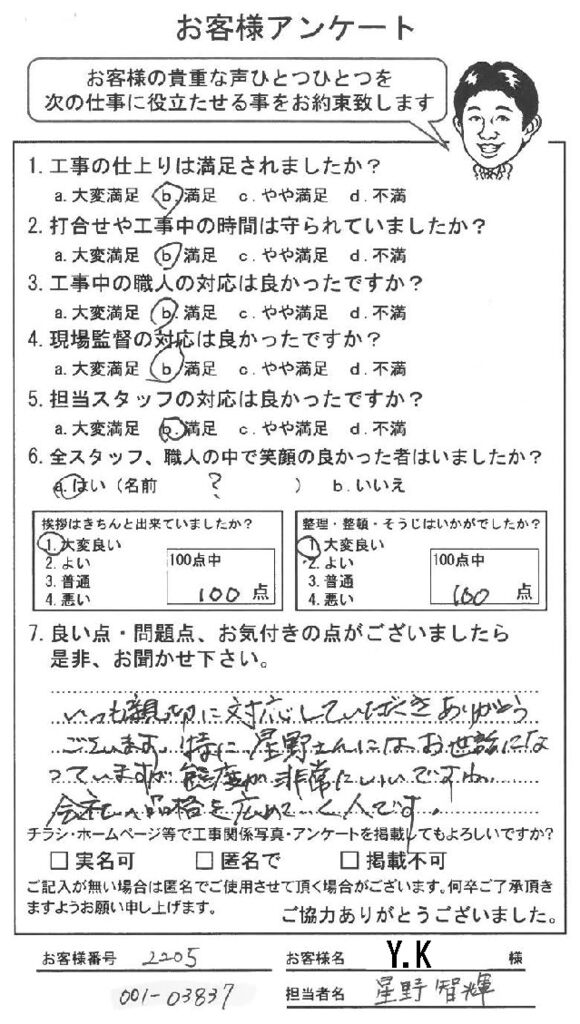 お客様アンケート
お客様の貴重な声ひとつひとつを
次の仕事に役立たせる事をお約束致します
1. 工事の仕上りは満足されましたか?
a.大変満足 b.満足 c.やや満足 d.不満
2. 打合せや工事中の時間は守られていましたか?
a.大変満足 b.満足 c.やや満足 d.不満
3. 工事中の職人の対応は良かったですか?
a.大変満足 b.満足 c.やや満足 d.不満
4. 現場監督の対応は良かったですか?
a.大変満足 b.満足 c.やや満足 d.不満
5. 担当スタッフの対応は良かったですか?
a.大変満足 b.満足 c.やや満足 d.不満
6. 全スタッフ、職人の中で笑顔の良かった者はいましたか?
a.はい(名前 ? ) b.いいえ
挨拶はきちんと出来ていましたか?
1.大変良い
2.よい
3.普通
4.悪い
100点中
100 点
整理・整頓・そうじはいかがでしたか?
1.大変良い
2.よい
3.普通
4.悪い
100点中
100 点
7. 良い点・問題点、お気付きの点がございましたら
是非、お聞かせ下さい。
いつも親切に対応していただきありがとう
ございます。特に星野さんにはお世話にな
っていますが態度が非常にいいですね。
会社の品格を広めていく人です。
チラシ・ホームページ等で工事関係写真・アンケートを掲載してもよろしいですか?
□ 実名可 □ 匿名で □ 掲載不可
ご記入が無い場合は匿名でご使用させて頂く場合がございます。何卒ご了承頂き
ますようお願い申し上げます。
ご協力ありがとうございました。
お客様番号 2205
001-03837
お客様名 Y.K 様
担当者名 星野 智輝